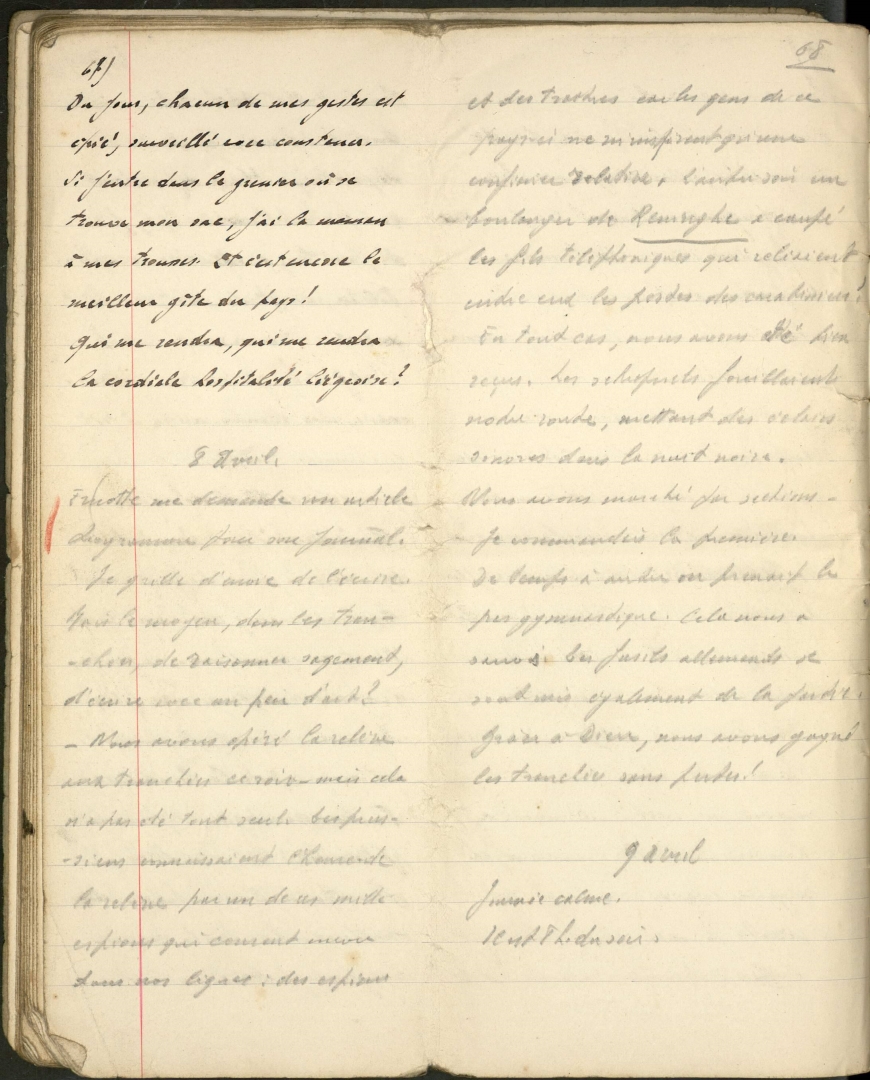 67)
Du jour, chacun de mes gestes est
épié, surveillé avec constance.
Si j'entre dans le grenier où se
trouve mon sac, j'ai la maman
à mes trousses. Et c'est encore le
meilleur gîte du pays!
Qui me rendra, qui me rendra
la cordiale hospitalité liégeoise?
8 Avril.
me demande un article
pour son journal.
Je grille d'envie de l'écrire.
Mais le moyen, dans les tran-
-chées, de raisonner sagement,
d'écrire avec un peu d'art?
- Nous avons opéré la relève
aux tranchées ce soir - mais cela
n'a pas été tout seul. Les prus-
-siens connaissaient l'heure de
la relève par un de ces mille
espions qui courent encore
dans nos lignes: des espions
68
et des traîtres car les gens de ce
pays-ci ne m'inspirent qu'une
confiance relative. L'autre soir un
boulanger de Reninghe a coupé
les fils téléphoniques qui reliaient
entre eux les postes des carabiniers!
En tout cas, nous avons été bien
reçus. Les schrapnels fouillaient
notre route, mettant des éclairs
sonores dans la nuit noire.
Nous avons marché par sections -
Je commandais la première.
De temps à autre on prenait le
pas gymnastique. Cela nous a
sauvés. Les fusils allemands se
sont mis également de la partie.
Grâce à Dieu, nous avons gagné
les tranchées sans pertes!
9 avril
Journée calme.
Il est 8 h. du soir.